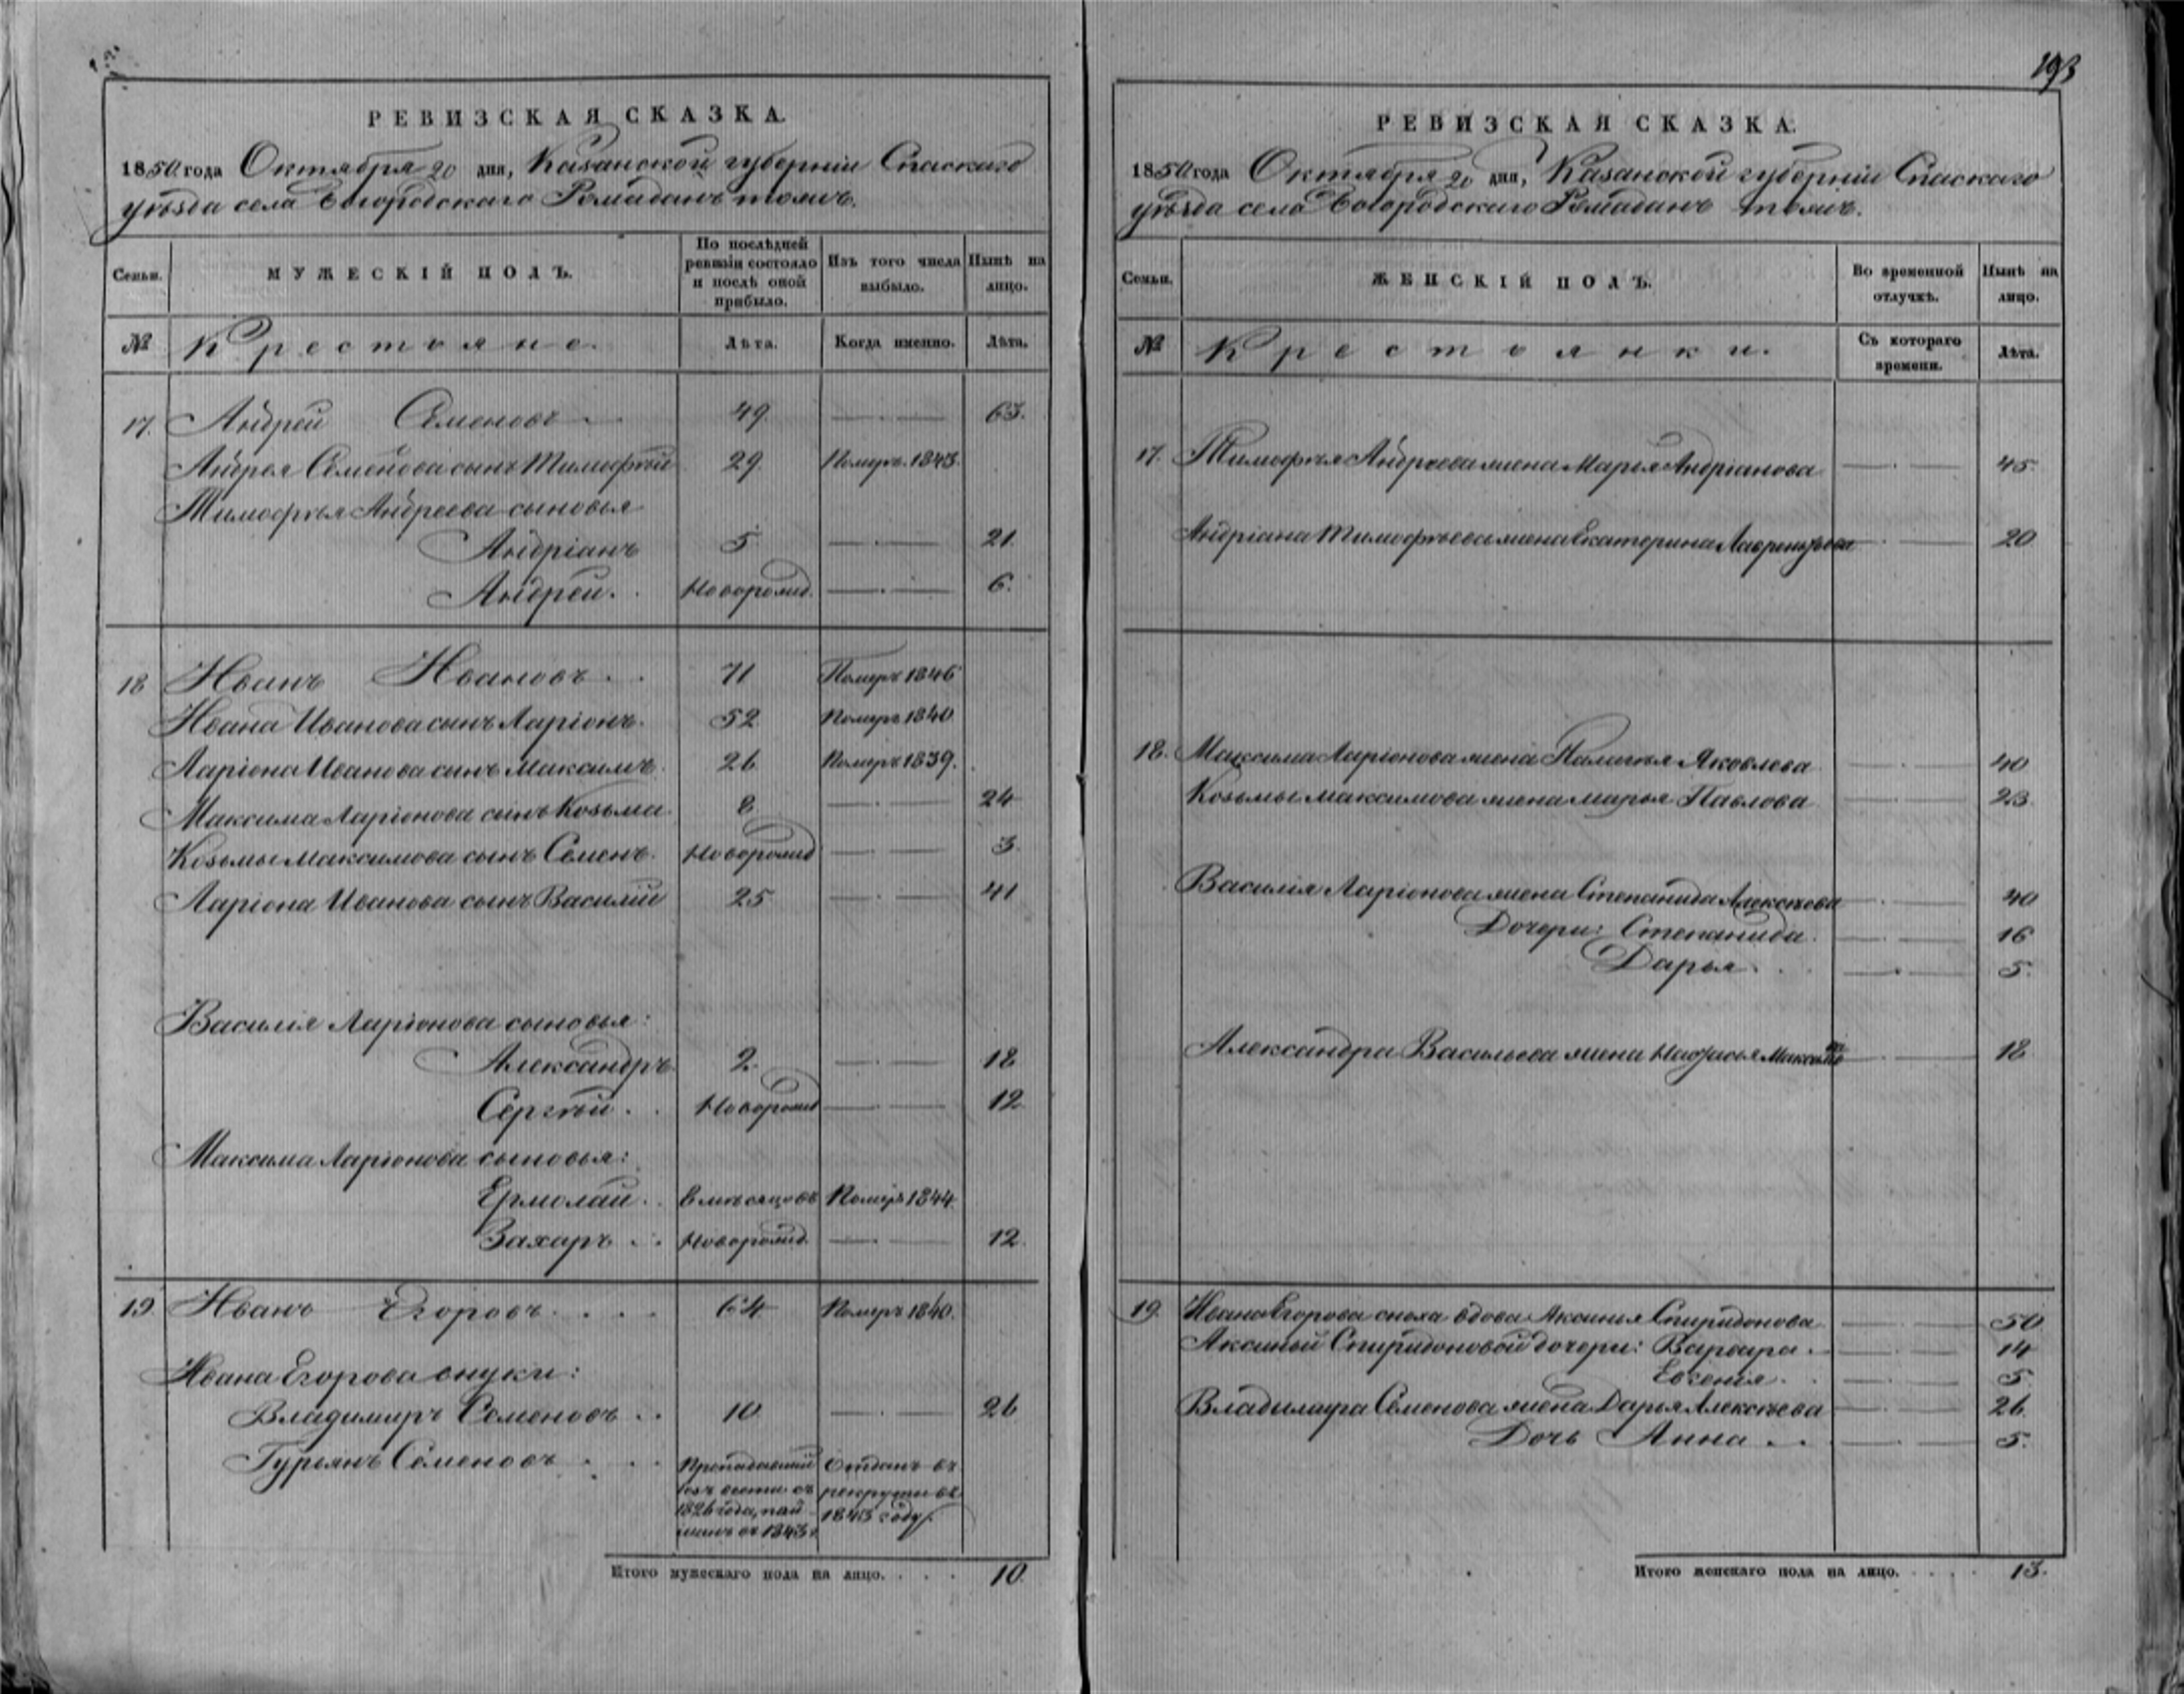 193
РЕВИЗСКАЯ СКАЗКА.
1850 года Октября 20 дня, Казанской губерніи Спаскаго
уѣзда села Богородскаго Ромаданъ тожъ.
Семьи.
МУЖЕСКІЙ ПОЛЪ.
По послѣдней ревизіи состояло и послѣ оной прибыло.
Изъ того числа выбыло.
Нынѣ на лицо.
№
Крестьяне.
Лѣта.
Когда именно.
Лѣта.
17. Андрей Семеновъ 49. 63.
Андрея Семенова сынъ Тимофей 29. Померъ 1843.
Тимофѣя Андреева сыновья
Андріанъ 5 21.
Андрей. Новорожд. 6.
18 Иванъ Ивановъ 71 Померъ 1846
Ивана Иванова сынъ Ларіонъ. 52 Померъ 1840
Ларіона Иванова сынъ Максимъ. 26 Померъ 1839.
Максима Ларіонова сынъ Козьма 8 24
Козьмы Максимова сынъ Семенъ. Новорожд 3.
Ларіона Иванова сынъ Василій 25 41
Василія Ларіонова сыновья:
Александръ 2. 18
Сергѣй. Новорожд 12.
Максима Ларіонова сыновья:
Ермолай. 8 мѣсяцовъ Померъ 1844.
Захаръ. Новорожд. 12.
19. Иванъ Егоровъ. 64 Померъ 1840.
Ивана Егорова внуки:
Владимиръ Семеновъ 10 26
Гурьянъ Семеновъ Пропадавшій Отданъ въ
безъ вести съ рекруты въ
1826 года, най 1843 году.
Итого мужескаго пола на лицо. 10.
РЕВИЗСКАЯ СКАЗКА.
1850 года Октября 20 дня, Казанской губерніи Спаскаго
уѣзда села Богородскаго Ромаданъ тожъ.
Семьи.
ЖЕНСКІЙ ПОЛЪ.
Во временной отлучкѣ.
Нынѣ на лицо.
№
Крестьянки.
Съ котораго времени.
Лѣта.
17. Тимофѣя Андреева жена Марья Андріанова 45.
Андріана Тимофѣева жена Екатерина Лаврентьева 20
18. Максима Ларіонова жена Яковлева 40
Козьмы Максимова жена Марья Павлова 23.
Василія Ларіонова жена Степанида Алексѣева 40
Дочери: Степанида. 16
Дарья. 5.
Александра Васильева жена 18
19. Ивана Егорова сноха вдова Аксинья Спиридонова 50
Аксиньи Спиридоновой дочери: Варвара. 14
Евгенія. 5.
Владимира Семенова жена Дарья Алексѣева 26.
Дочь Анна 5.
Итого женскаго пола на лицо. 13.